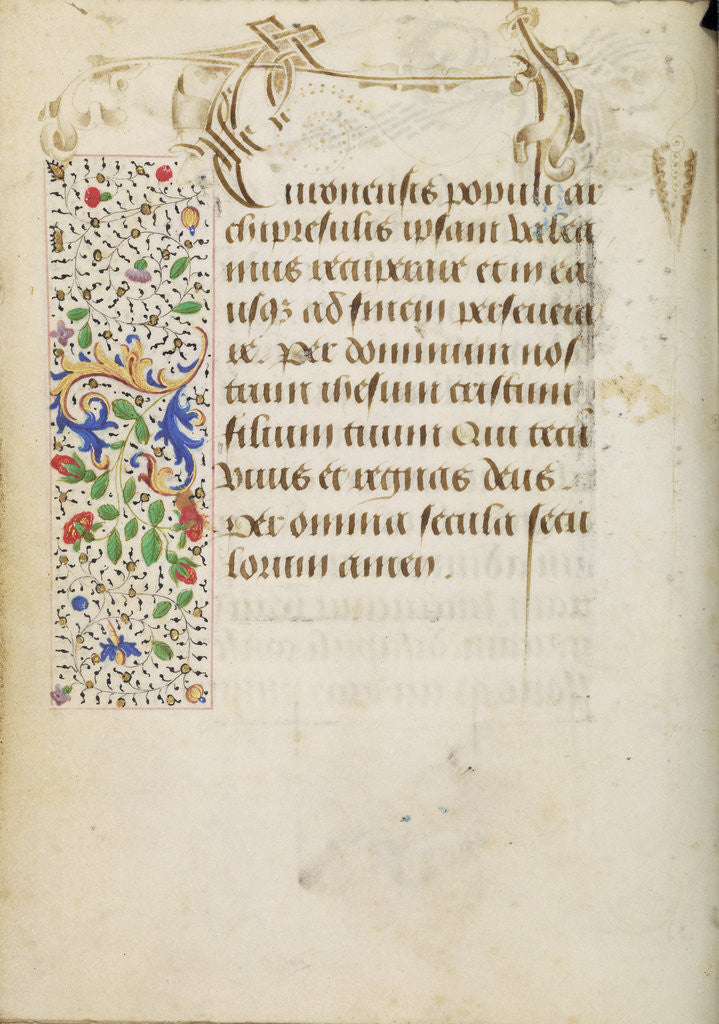 Turonensis populi ar
chipresulis ipsam valea
mus recuperare et in ea
usqz ad finem persevera
re. Per dominum nos
trum ihesum cristum
filium tuum Qui tecu
vivis et regnas deus.
Per omnia secula secu
lorum amen.